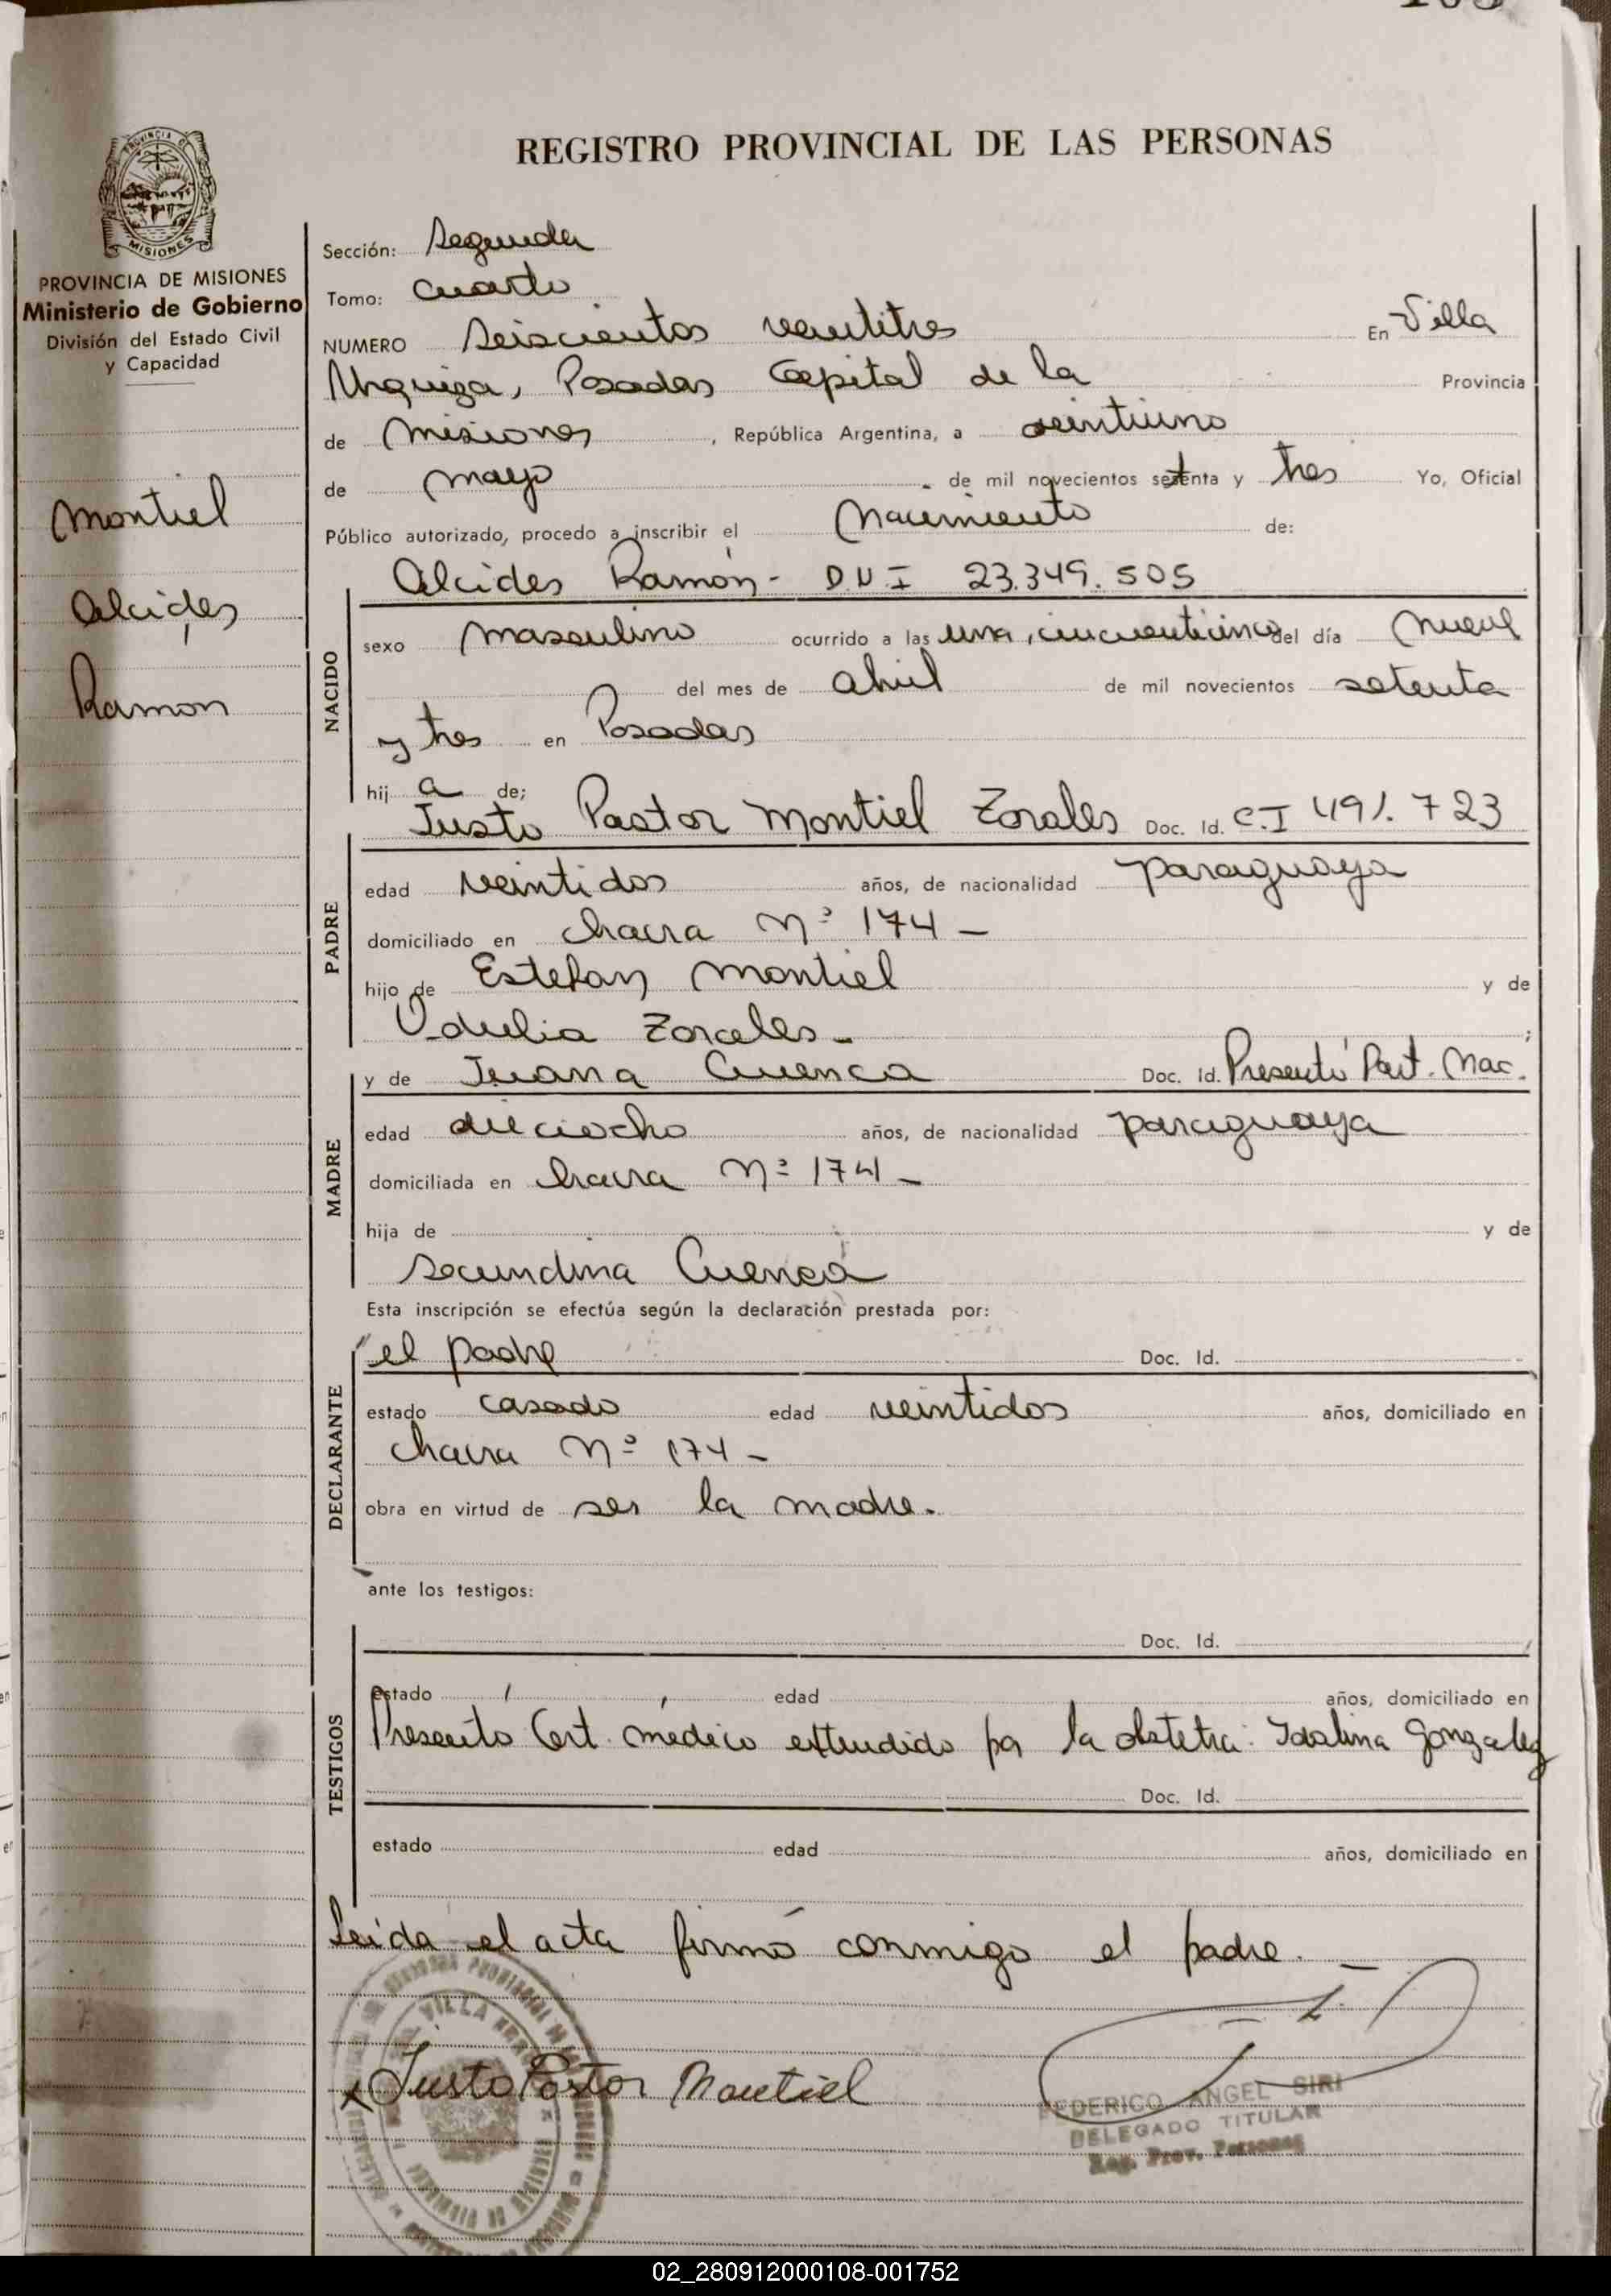 REGISTRO PROVINCIAL DE LAS PERSONAS
PROVINCIA DE
MISIONES
PROVINCIA DE MISIONES
Ministerio de Gobierno
División del Estado Civil
y Capacidad
Montiel
Alcides
Ramón
Sección: Segunda
Tomo: Cuarto
NUMERO Seiscientos veintitres En Villa
Urquiza, Posadas Capital de la Provincia
de Misiones, República Argentina, a veintiuno
de mayo de mil novecientos setenta y tres Yo, Oficial
Público autorizado, procedo a inscribir el Nacimiento de:
NACIDO
Alcides Ramón - D.N.I 23.349.505
sexo masculino ocurrido a las una, cincuenticinco del día nueve
del mes de abril de mil novecientos setenta
y tres en Posadas
hij a de;
PADRE
Justo Pastor Montiel Zorales Doc. Id. C.I 491.723
edad veintidos años, de nacionalidad paraguaya
domiciliado en chacra Nº 174 -
hijo de Estefan Montiel y de
Odulia Zorales -;
MADRE
y de Juana Cuenca Doc. Id. Presentó Part. Nac.
edad dieciocho años, de nacionalidad paraguaya
domiciliada en chacra Nº 174 -
hija de y de
Secundina Cuenca
Esta inscripción se efectúa según la declaración prestada por:
DECLARANTE
el padre Doc. Id.
estado casado edad veintidos años, domiciliado en
chacra Nº 174 -
obra en virtud de ser la madre.
ante los testigos:
TESTIGOS
Doc. Id.
estado edad años, domiciliado en
Presento Cert. médico extendido por la obstetra: Idalina Gonzalez
Doc. Id.
estado edad años, domiciliado en
Leida el acta firmó conmigo el padre. -
VILLA
x Justo Pastor Montiel
FEDERICO ANGEL SIRI
DELEGADO TITULAR
Reg. Prov. Personas
02_280912000108-001752